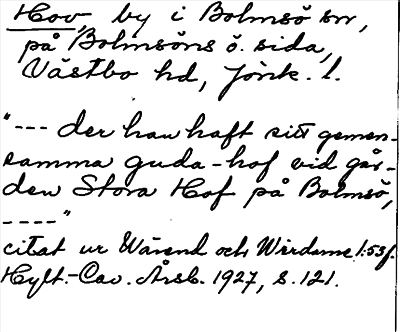 Hov, by i Bolmsö sn,
på Bolmsöns ö. sida,
Västbo hd, Jönk. l.
"--- der han haft sitt gemen-
samma guda-hof vid går-
den Stora Hof på Bolmsö,
----"
citat ur Wärend och Wirdarne 1:53f.
Hylt.-Cav. Årsb. 1927, s. 121.